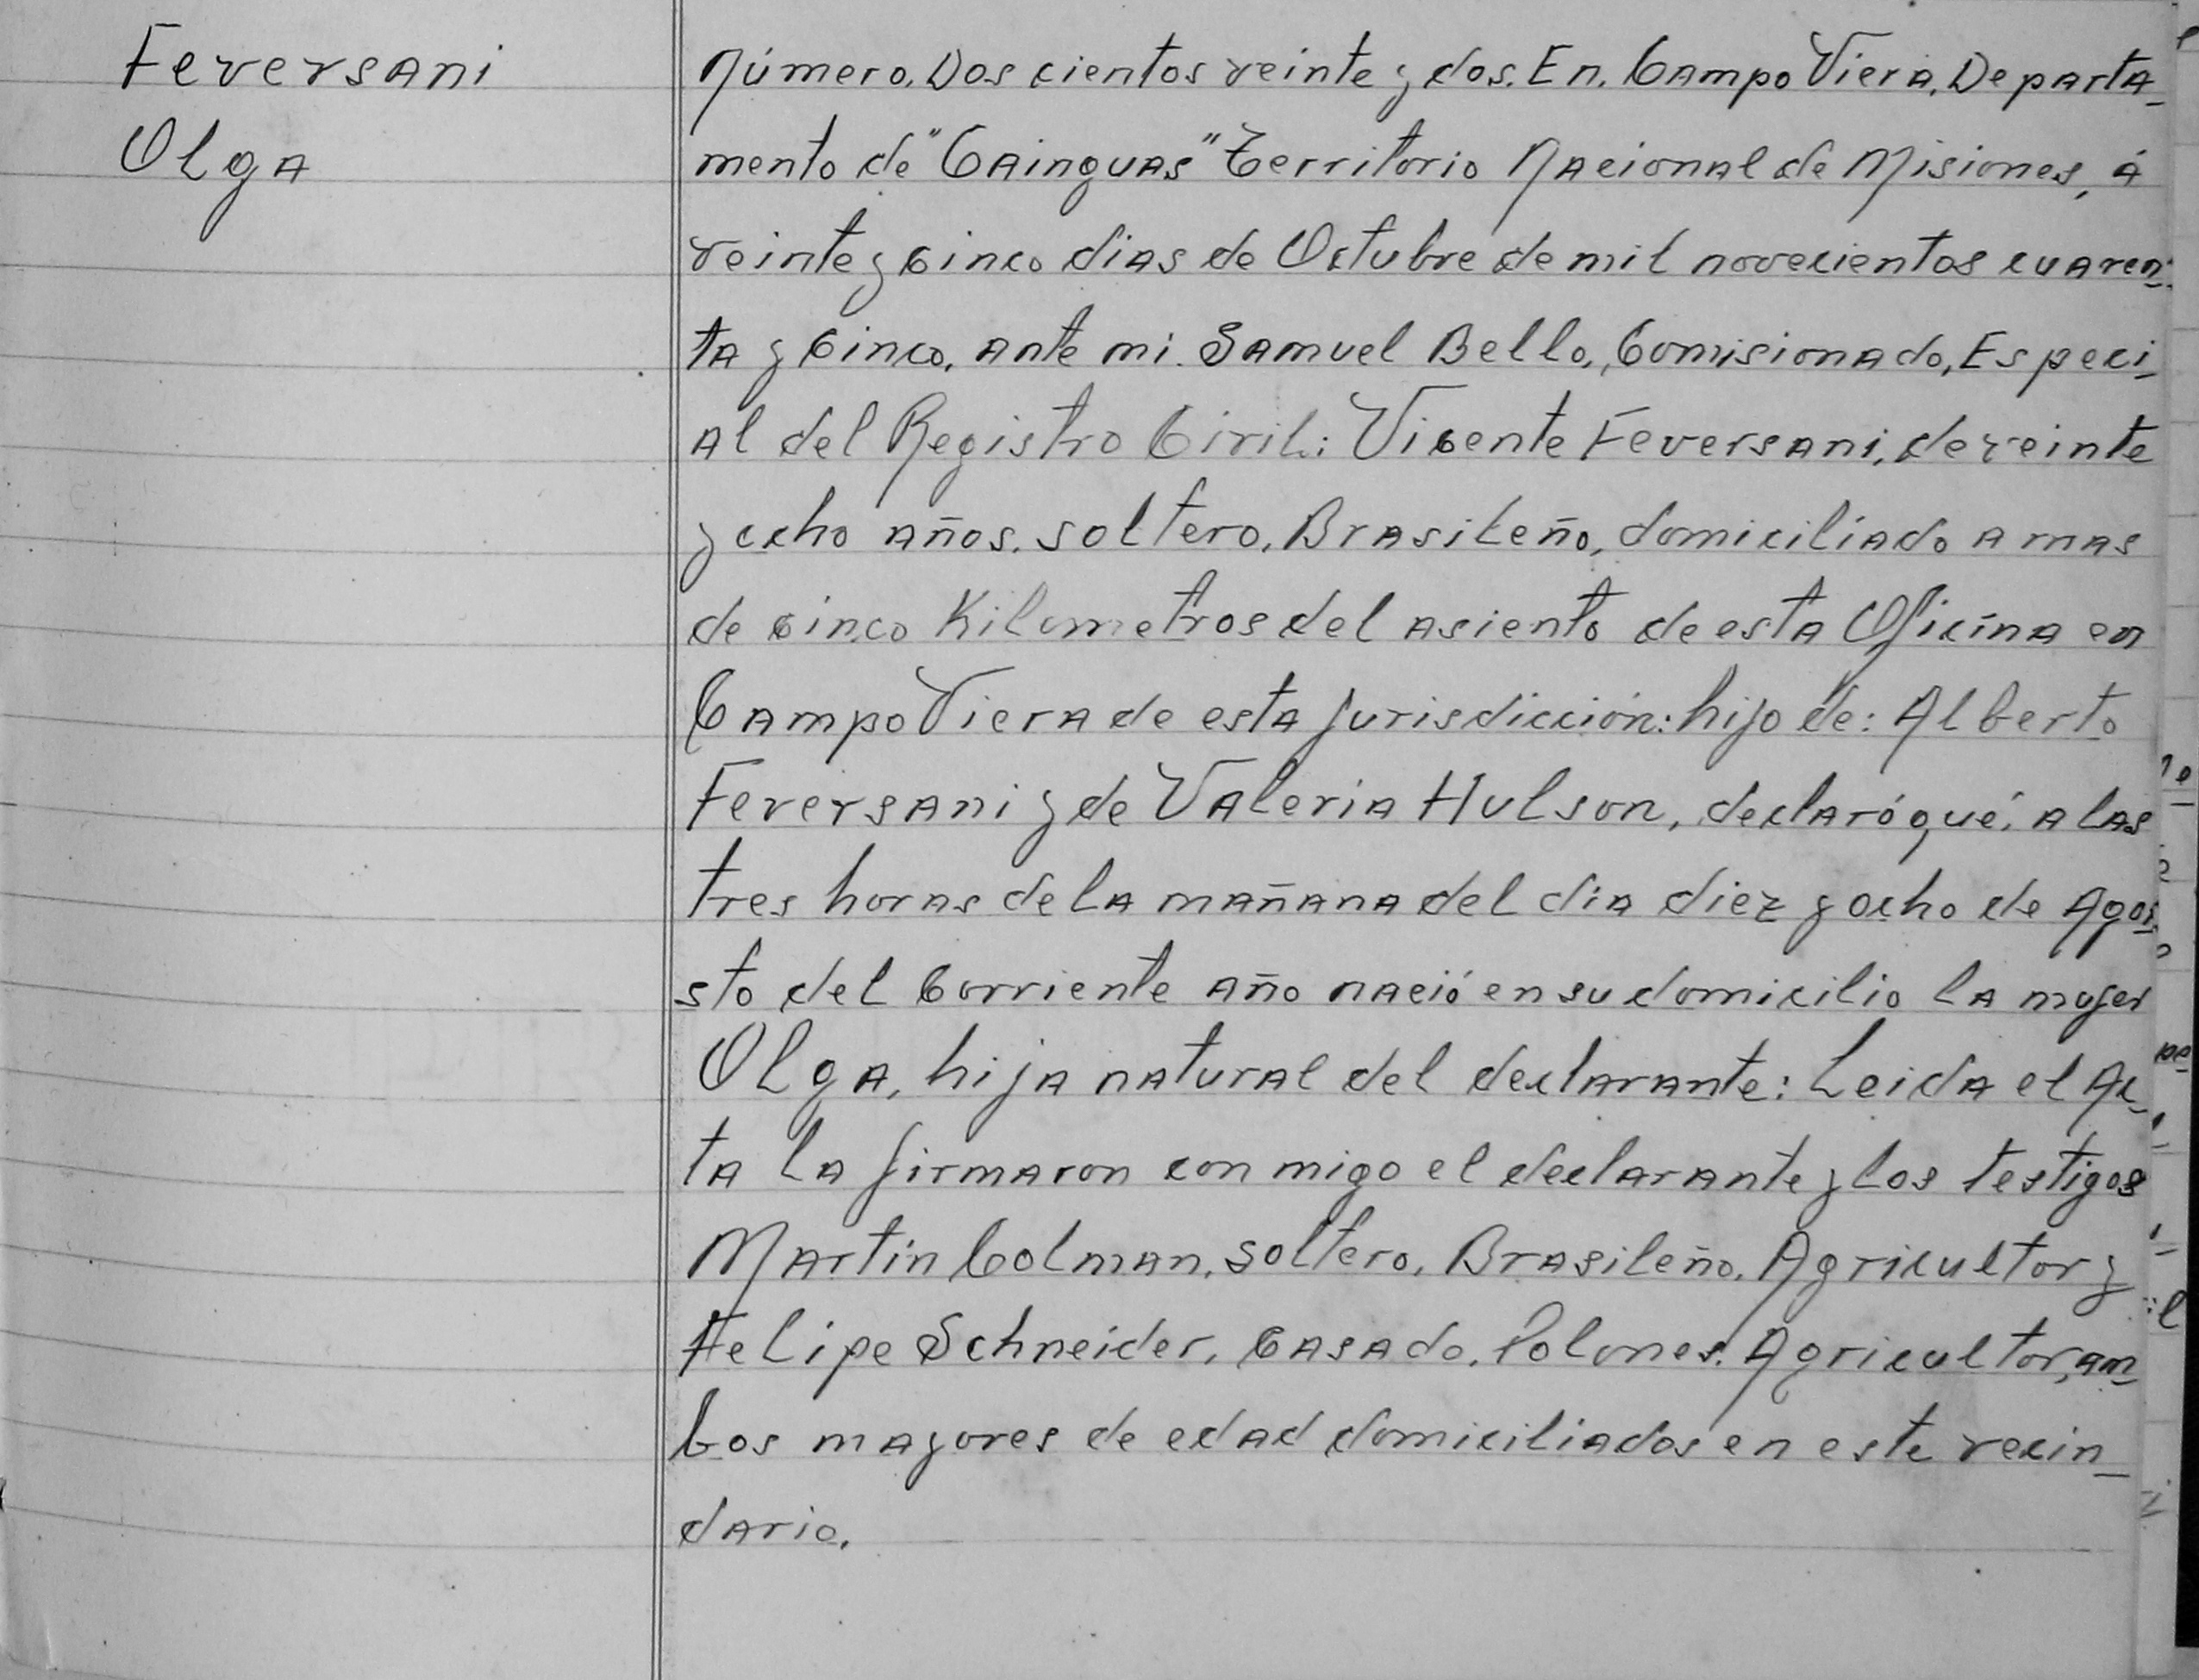 Feversani
Olga
Número. Dos cientos veinte y dos. En. Campo Viera, Departa_
mento de "Cainguas" Territorio Nacional de Misiones, á
veinte y cinco dias de Octubre de mil novecientos cuaren_
ta y Cinco, ante mi. Samuel Bello, Comisionado, Especi_
al del Registro Civil: Vicente Feversani, de veinte
y ocho años, soltero, Brasileño, domiciliado a mas
de cinco Kilometros del asiento de esta Oficina en
Campo Viera de esta jurisdicción: hijo de: Alberto
Feversani y de Valeria Hulson, declaró qué, a las
tres horas de la mañana del dia diez y ocho de Agos_
sto del Corriente año nació en su domicilio la mujer
Olga, hija natural del declarante: Leida el Ac_
ta la firmaron con migo el declarante y los testigos
Martín Colman, soltero, Brasileño, Agricultor y
Felipe Schneider, Casado, Polones, Agricultor, am_
bos mayores de edad domiciliados en este vecin_
dario.